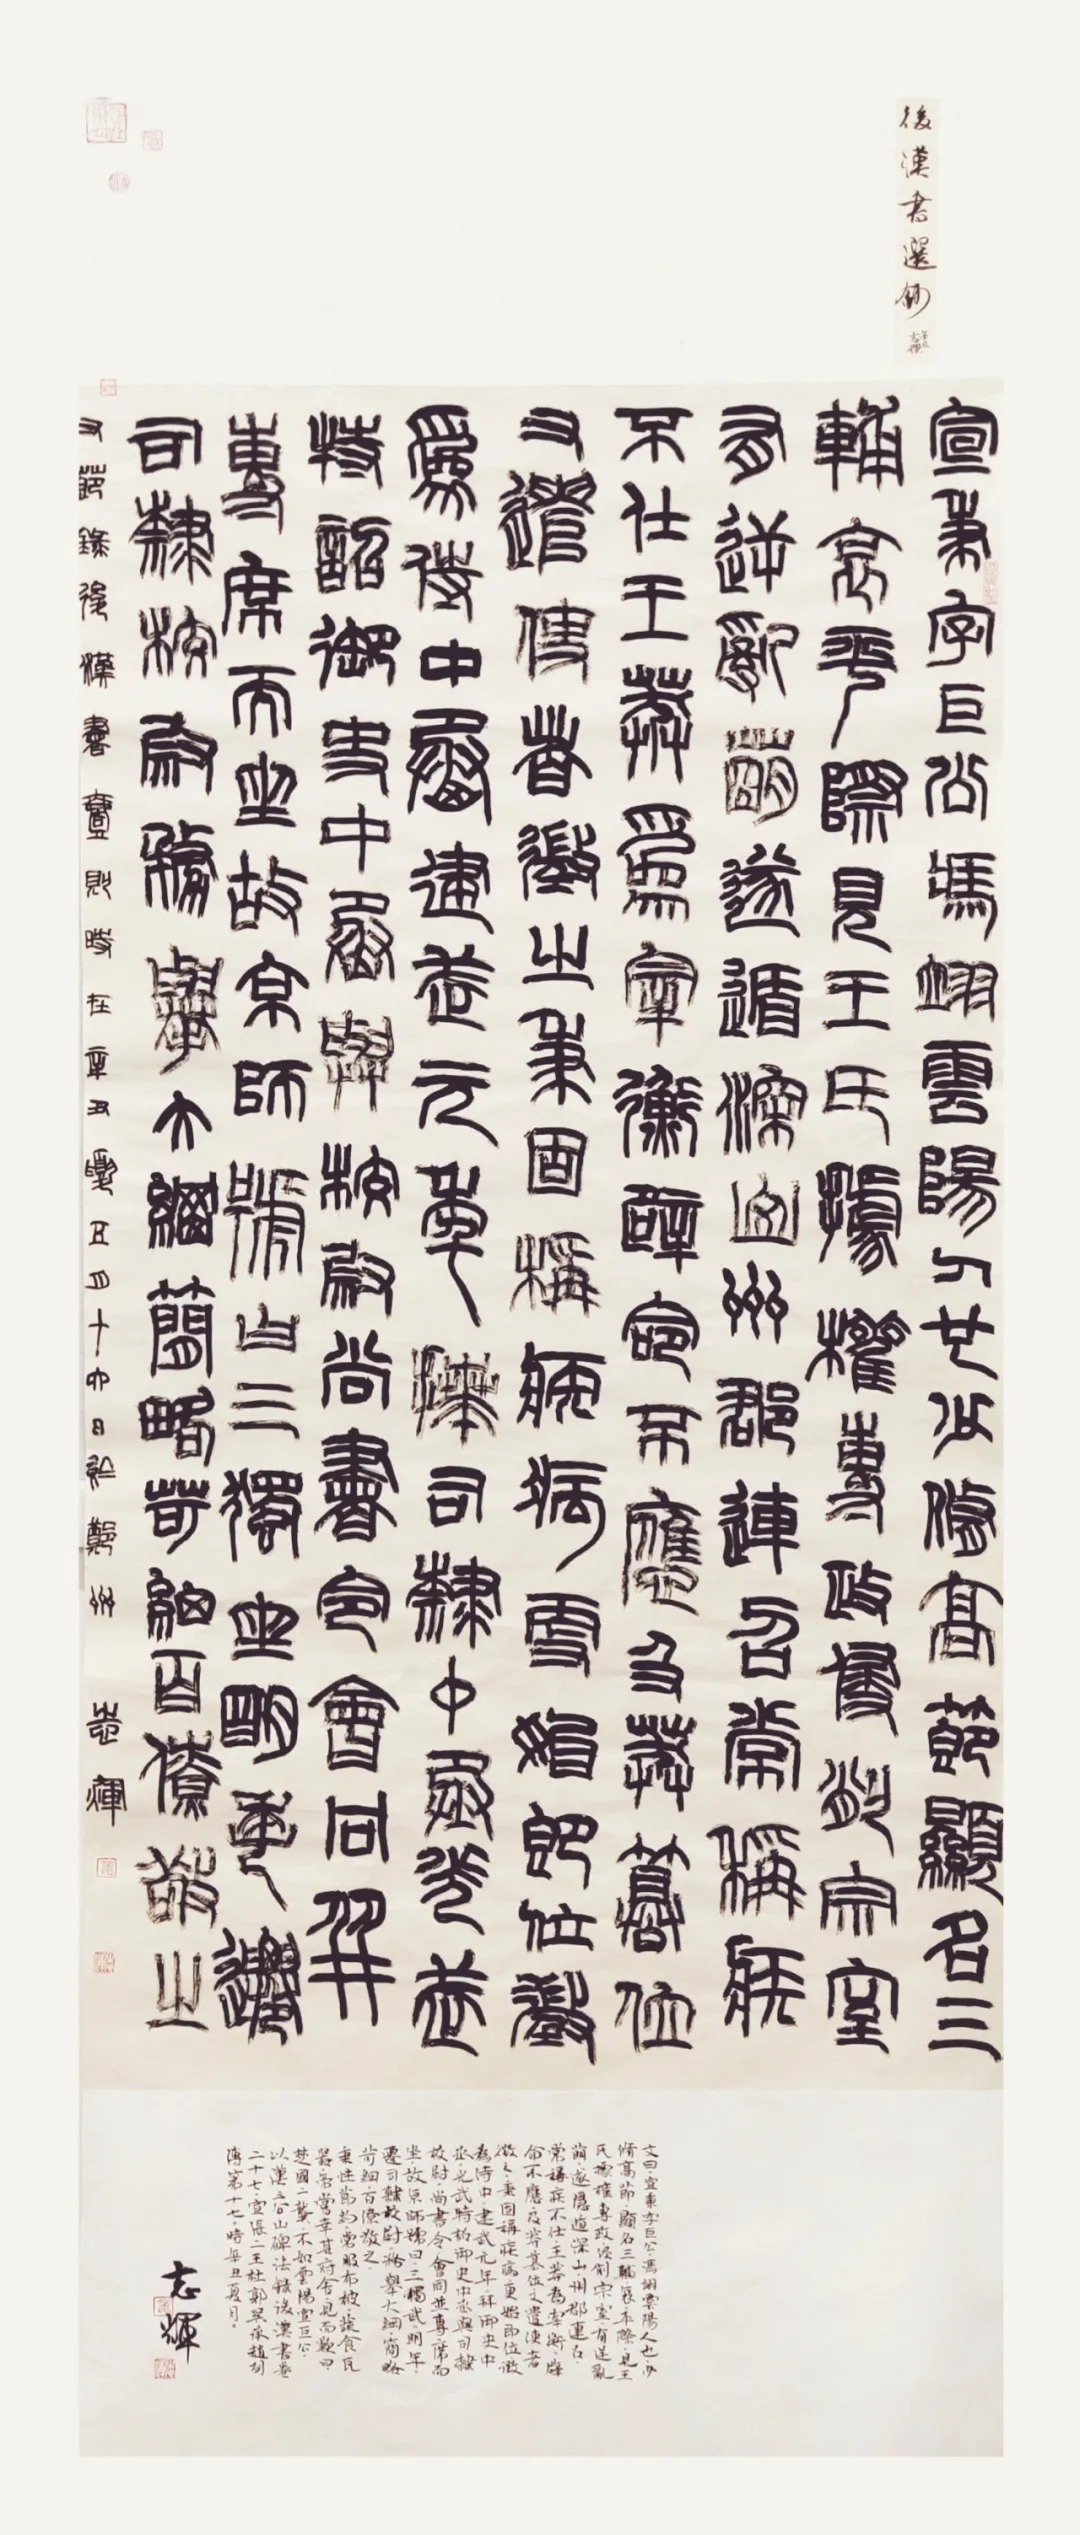 後漢書選鈔
辛丑
志輝
宣秉字巨公馮翊雲陽人也少脩高節顯名三
輔哀平際見王氏據權專政侵削宗室
有逆亂萌遂遁深山州郡連召常稱疾
不仕王莽為宰衡辟命不應及莽篡位
又遣使者徵之秉固稱疾病更始即位徵
為侍中建武元年拜司隸中丞光武
特詔御史中丞與校尉尚書令會同並
專席而坐故京師號曰三獨坐明年遷
司隸校尉務舉大綱簡略苛細百僚敬之
又節錄後漢書壹則時在辛丑夏五月十六日於鄭州 志輝
文曰宣秉字巨公馮翊雲陽人也少
脩高節顯名三輔哀平際見王
氏據權專政侵削宗室有逆亂
萌遂隱遁深山州郡連召
常稱疾不仕王莽為宰衡辟
命不應及莽篡位又遣使者
徵之秉固稱疾病更始即位徵
為侍中建武元年拜御史中
丞光武特詔御史中丞與司隸
校尉尚書令會同並專席而
坐故京師號曰三獨坐明年
遷司隸校尉務舉大綱簡略
苛細百僚敬之
秉性節約常服布被蔬食瓦
器帝嘗幸其府舍見而歎曰
楚國二龔不如雲陽宣巨公
以漢三公山碑法錄後漢書卷
二十七宣張二王杜郭吳承趙列
傳第十七時辛丑夏月
志輝